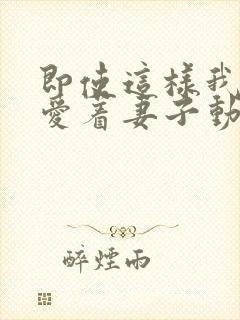 即使這樣我
愛着妻子動
醉煙雨